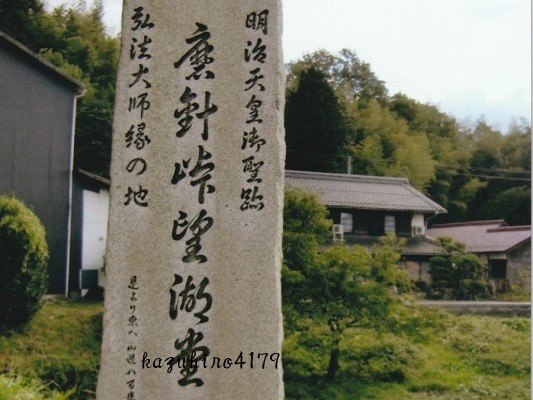 明治天皇御聖跡
磨針峠望湖堂
弘法大師縁の地
是より東へ山道八百米
kazuhiro4179